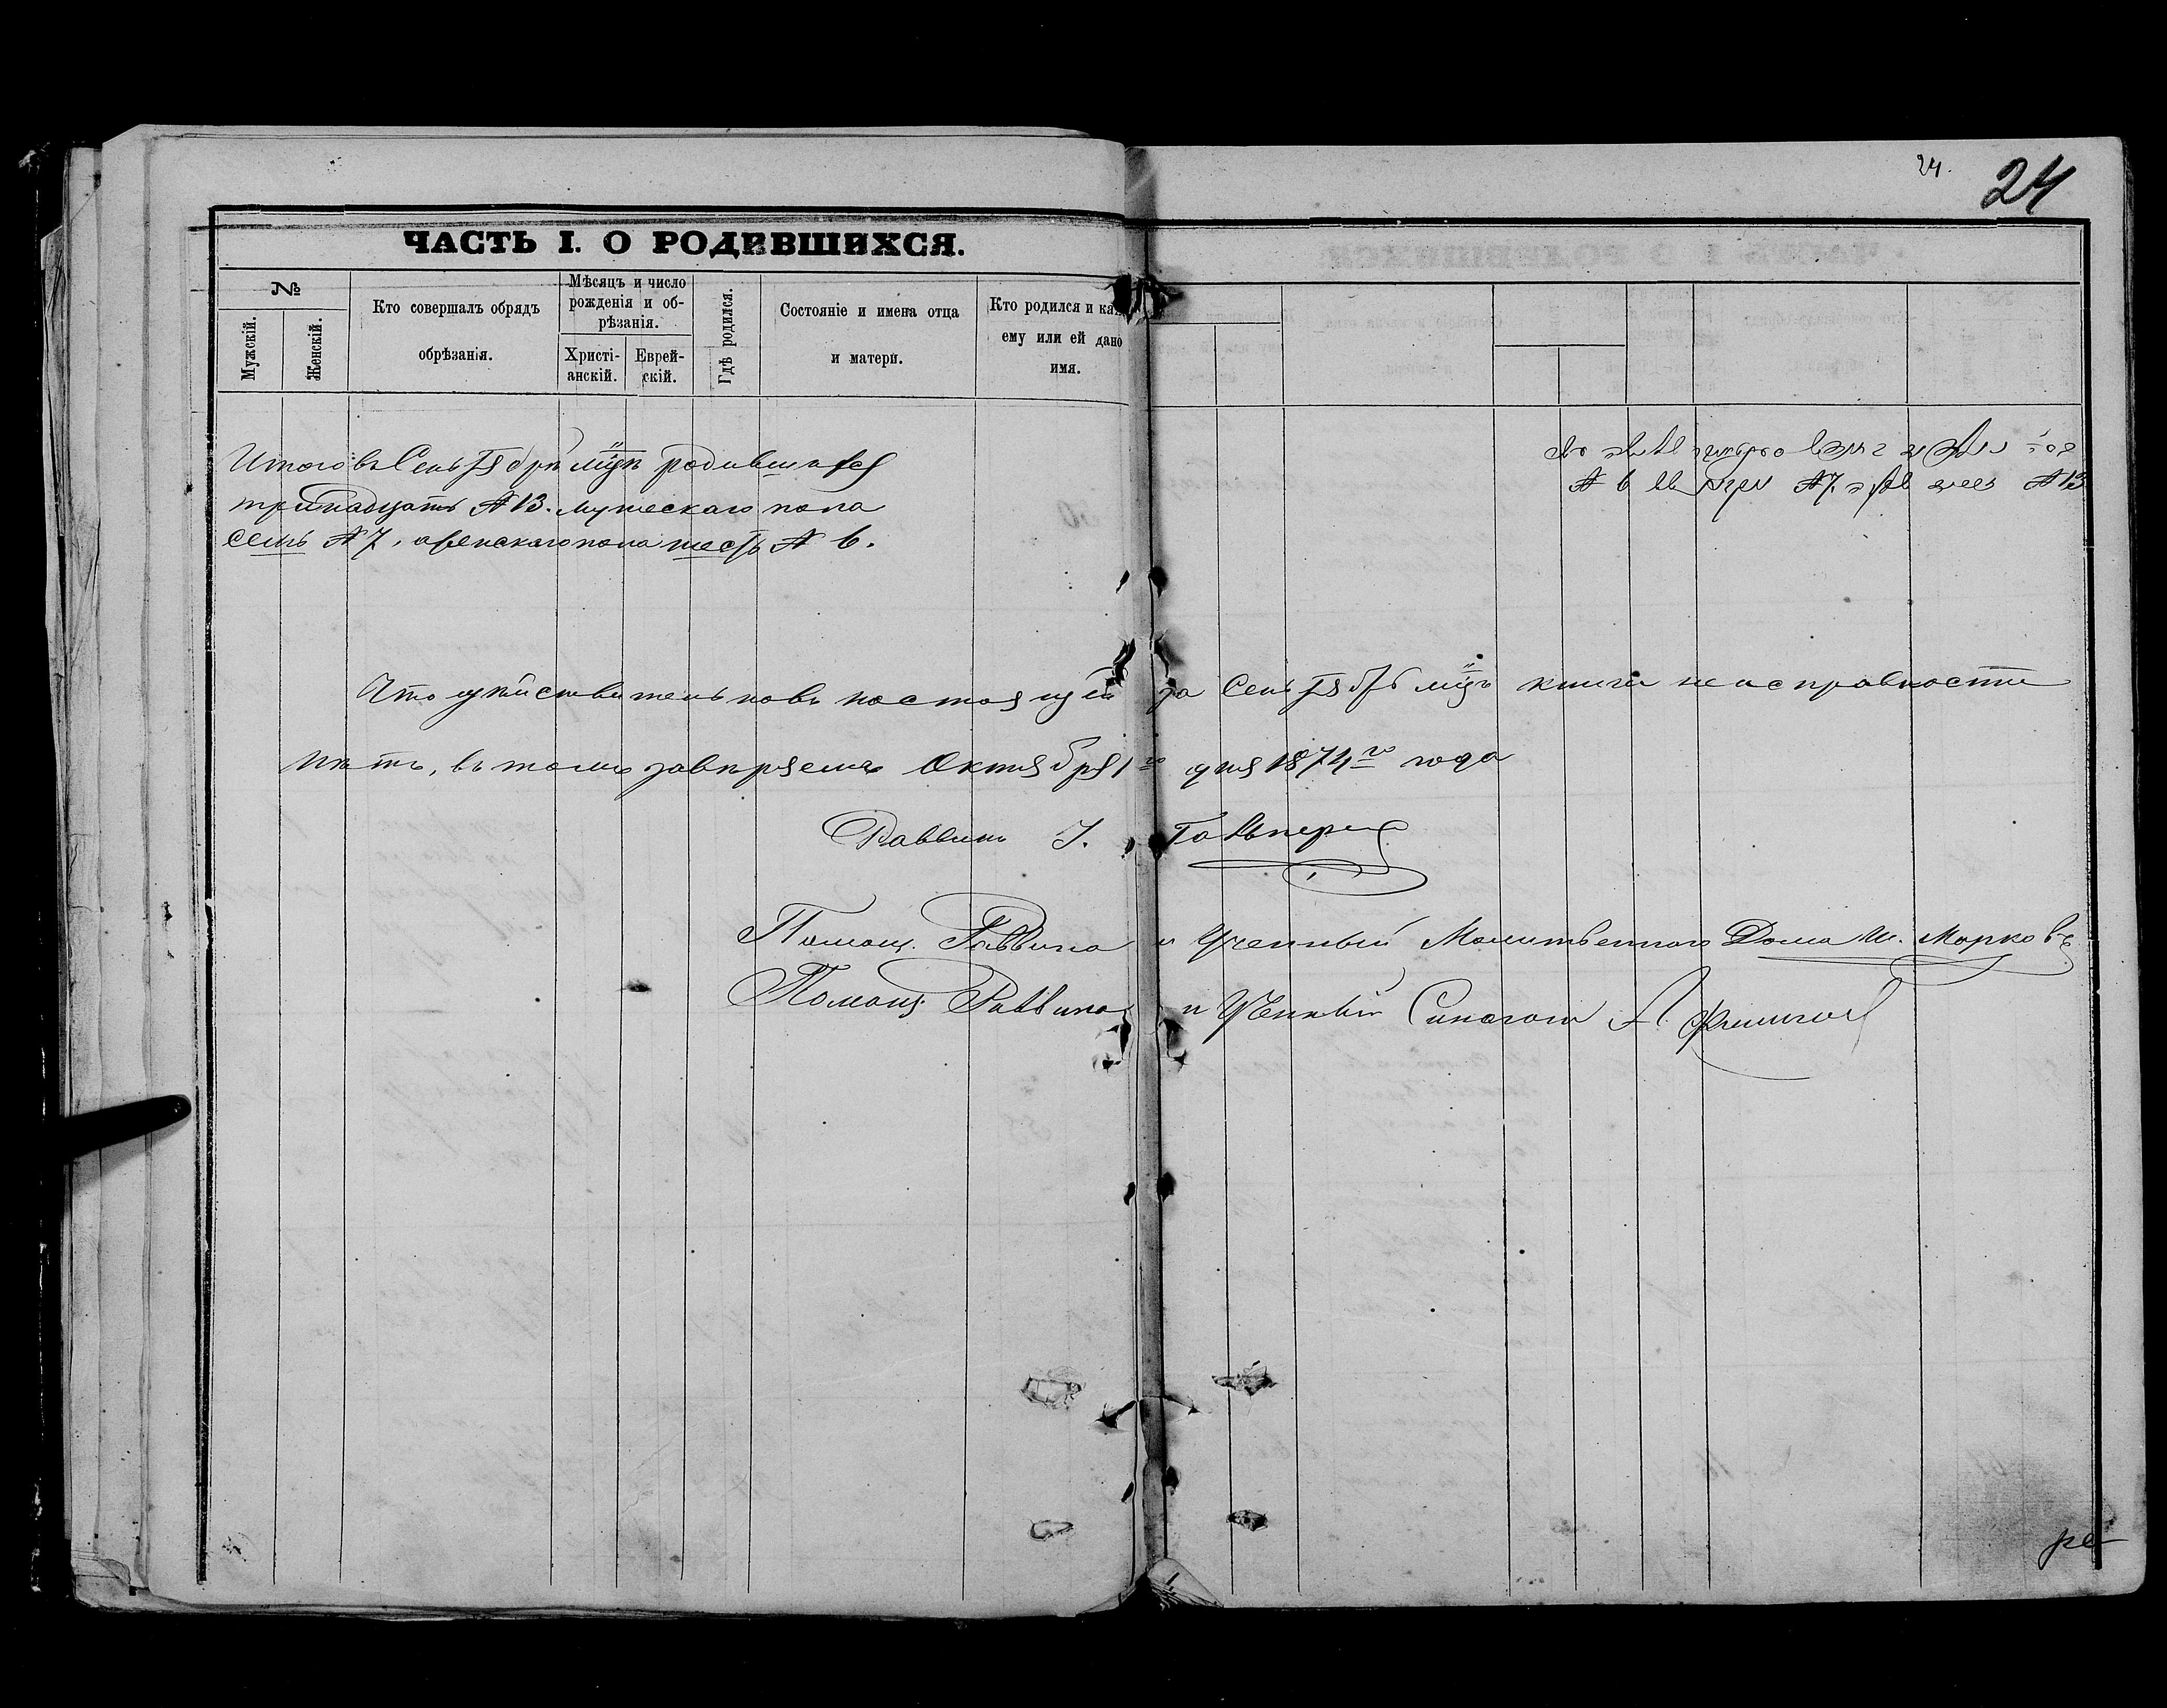 24.
24
ЧАСТЬ I. О РОДИВШИХСЯ.
№
Мужскій.
Женскій.
Кто совершалъ обрядъ
обрѣзанія.
Мѣсяцъ и число
рожденія и об-
рѣзанія.
Христі-
анскій.
Еврей-
скій.
Гдѣ родился.
Состояніе и имена отца
и матери.
Кто родился и как
ему или ей дано
имя.
Итого въ Сентябрѣ мцѣ родившихся
тринадцать № 13. мужескаго пола
семь № 7, женскаго пола шесть № 6.
№ 13
№ 7
№ 6
Что дѣйствительно въ настоящей за Сентябрь мцъ книги неисправности
нѣтъ, въ томъ завѣряемъ Октября 1го дня 1874го года
Раввинъ І. Гальперн
Помощ. Раввина и Ученный Молитвенного Дома М. Марковъ
Помощ. Раввина и Ученый Синагоги А.